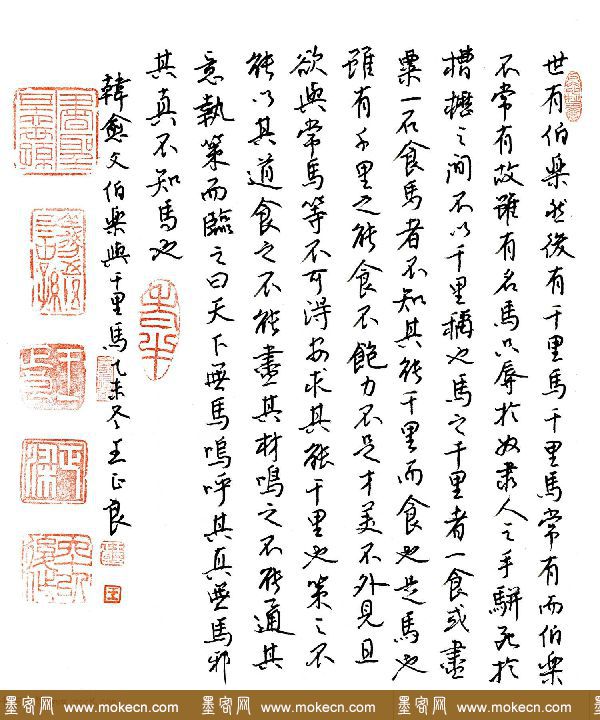 世有伯樂然後有千里馬千里馬常有而伯樂
不常有故雖有名馬只辱於奴隶人之手駢死於
槽櫪之間不以千里稱也馬之千里者一食或盡
粟一石食馬者不知其能千里而食也是馬也
雖有千里之能食不飽力不足才美不外見且
欲與常馬等不可得安求其能千里也策之不
能以其道食之不能盡其材鳴之不能通其
意執策而臨之曰天下無馬嗚呼其真無馬邪
其真不知馬也
韓愈文伯樂與千里馬乙未冬王正良
王
墨客网 www.mokecn.com 墨客网 www.mokecn.com 墨客网 www.mokecn.com 墨客网 www.mokecn.com